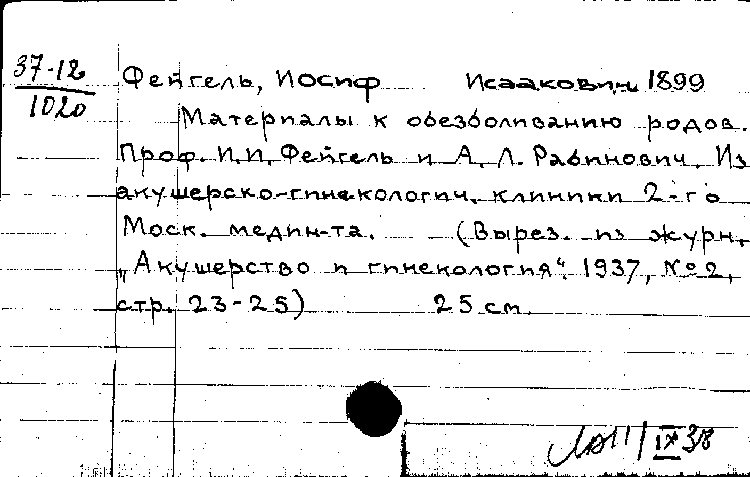 37-12
1020
Фейгель, Иосиф Исаакович 1899
Материалы к обезболиванию родов.
Проф. И.И. Фейгель и А. Л. Рабинович. Из
акушерско-гинекологич. клиники 2-го
Моск. медин-та. (Вырез. из журн.
„Акушерство и гинекология“. 1937, №2,
стр. 23-25) 25 см.
11/IX 38